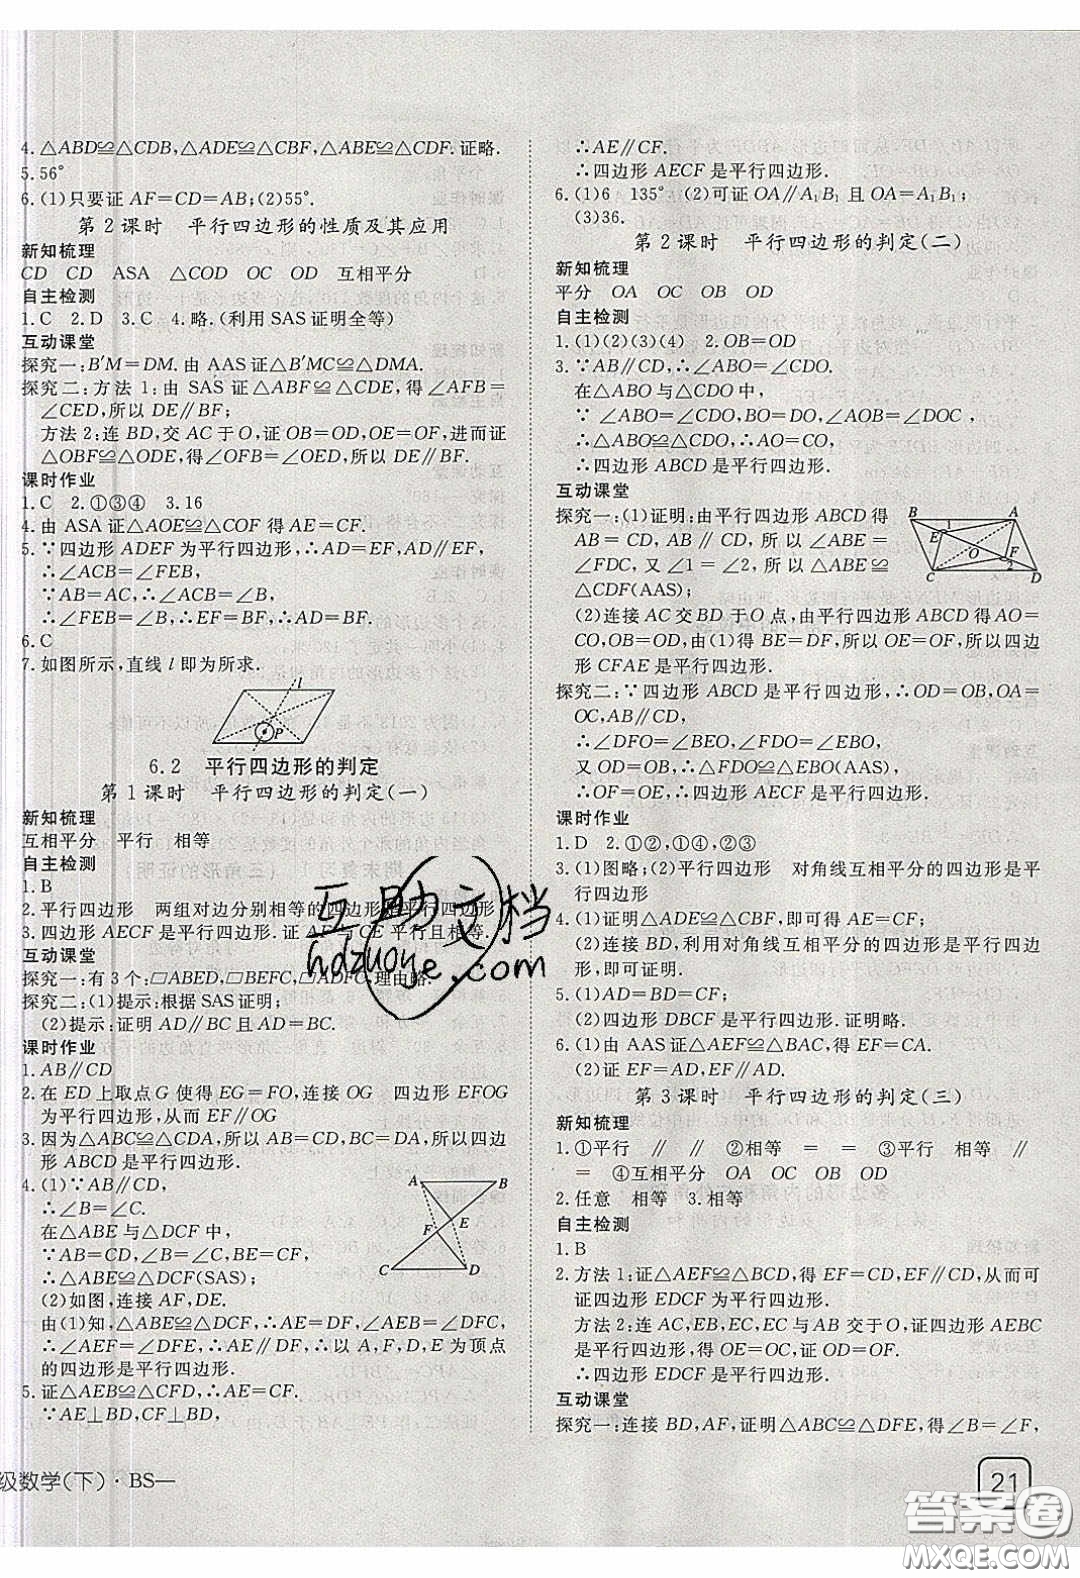 4.△ABD≌△CDB,△ADE≌△CBF,△ABE≌△CDF.证略.
5.56°
6.(1)只要证 AF=CD=AB;(2)55°.
第2课时 平行四边形的性质及其应用
新知梳理
CD CD ASA △COD OC OD 互相平分
自主检测
1.C 2.D 3.C 4.略.(利用SAS证明全等)
互动课堂
探究一:B′M=DM.由 AAS证△B′MC≌△DMA.
探究二:方法 1:由 SAS 证△ABF≌△CDE,得∠AFB=
∠CED,所以 DE∥BF;
方法 2:连 BD,交 AC 于 O,证 OB=OD,OE=OF,进而证
△OBF≌△ODE,得∠OFB=∠OED,所以 DE∥BF.
课时作业
1.C 2.①③④ 3.16
4.由 ASA 证△AOE≌△COF 得 AE=CF.
5.∵四边形 ADEF 为平行四边形,∴AD=EF,AD∥EF,
∴∠ACB=∠FEB,
∵AB=AC,∴∠ABC=∠ACB,
∴∠FEB=∠FBE,∴EF=BF,∴AD=BF.
6.C
7.如图所示,直线 l 即为所求.
l
P
6.2 平行四边形的判定
第1课时 平行四边形的判定(一)
新知梳理
互相平分 平行 相等
自主检测
1.B
2.平行四边形 两组对边分别相等的四边形是平行四边形
3.四边形 AECF 是平行四边形.证 AF与CE 平行且相等.
互动课堂
探究一:有 3 个:□ABED,□BEFC,□ADFC,理由略.
探究二:(1)提示:根据 SAS证明;
(2)提示:证明 AD∥BC 且 AD=BC.
课时作业
1.AB∥CD
2.在 ED 上取点 G 使得 EG=FO,连接 OG 四边形 EFOG
为平行四边形,从而 EF∥OG
3.因为△ABC≌△CDA,所以 AB=CD,BC=DA,所以四边
形 ABCD 是平行四边形.
4.(1)∵AB∥CD,
∴∠B=∠C.
在△ABE与△DCF 中,
∵AB=CD,∠B=∠C,BE=CF,
∴△ABE≌△DCF(SAS).
(2)如图,连接 AF,DE.
A B
F E
C D
由(1)知,△ABE≌△DCF,∴AE=DF,∠AEB=∠DFC,
∴∠AEF=∠DFE,∴AE∥DF,∴以 A、F、D、E 为顶点
的四边形是平行四边形.
5.证△AEB≌△CFD,∴AE=CF.
∵AE⊥BD,CF⊥BD,
级数学(下)·BS—
∴AE∥CF.
∴四边形 AECF 是平行四边形.
6.(1)6 135° (2)可证 OA∥A₁B₁ 且 OA=A₁B₁;
(3)36.
第2课时 平行四边形的判定(二)
新知梳理
平分 OA OC OB OD
自主检测
1.(1)(2)(3)(4) 2.OB=OD
3.∵AB∥CD,∴∠ABO=∠CDO.
在△ABO与△CDO 中,
∵∠ABO=∠CDO,BO=DO,∠AOB=∠DOC,
∴△ABO≌△CDO,∴AB=CD,
∴四边形 ABCD 是平行四边形.
互动课堂
探究一:(1)证明:由平行四边形 ABCD 得
AB=CD,AB∥CD,所以∠ABE=
∠FDC,又∠1=∠2,所以△ABE≌
△CDF(AAS).
B A
1
E
O F
2
C D
(2)连接 AC 交 BD 于 O 点,由平行四边形 ABCD 得AO=
CO,OB=OD,由(1)得 BE=DF,所以 OE=OF,所以四边形
CFAE 是平行四边形.
探究二:∵四边形 ABCD 是平行四边形,∴OD=OB,OA=
OC,AB∥CD,
∴∠DFO=∠BEO,∠FDO=∠EBO,
又 OD=OB,∴△FDO≌△EBO(AAS).
∴OF=OE,∴四边形 AECF 是平行四边形.
课时作业
1.D 2.①②,①④,②③
3.(1)图略;(2)平行四边形 对角线互相平分的四边形是平
行四边形
4.(1)证明△ADE≌△CBF,即可得 AE=CF.
(2)连接 BD,利用对角线互相平分的四边形是平行四边
形,即可证明.
5.(1)AD=BD=CF;
(2)四边形 DBCF 是平行四边形.证明略.
6.(1)由 AAS证△AEF≌△BAC,得 EF=CA.
(2)证 EF=AD,EF∥AD.
第3课时 平行四边形的判定(三)
新知梳理
1.①平行 ∥ ∥ ②相等 = = ③平行 相等 ∥
= ④互相平分 OA OC OB OD
2.任意 相等 3.相等
自主检测
1.B
2.方法 1:证△AEF≌△BCD,得 EF=CD,EF∥CD,从而可
证四边形 EDCF 为平行四边形.
方法 2:连接 AC,EB,EC,EC与 AB 交于 O,证四边形 AEBC
是平行四边形,得 OE=OC,证 OD=OF.
∴四边形 EDCF 是平行四边形.
互动课堂
探究一:连接 BD,AF,证明△ABC≌△DFE,得∠B=∠F,
21
互助文档
hdzuoye.com
答案圈
MXQE.COM